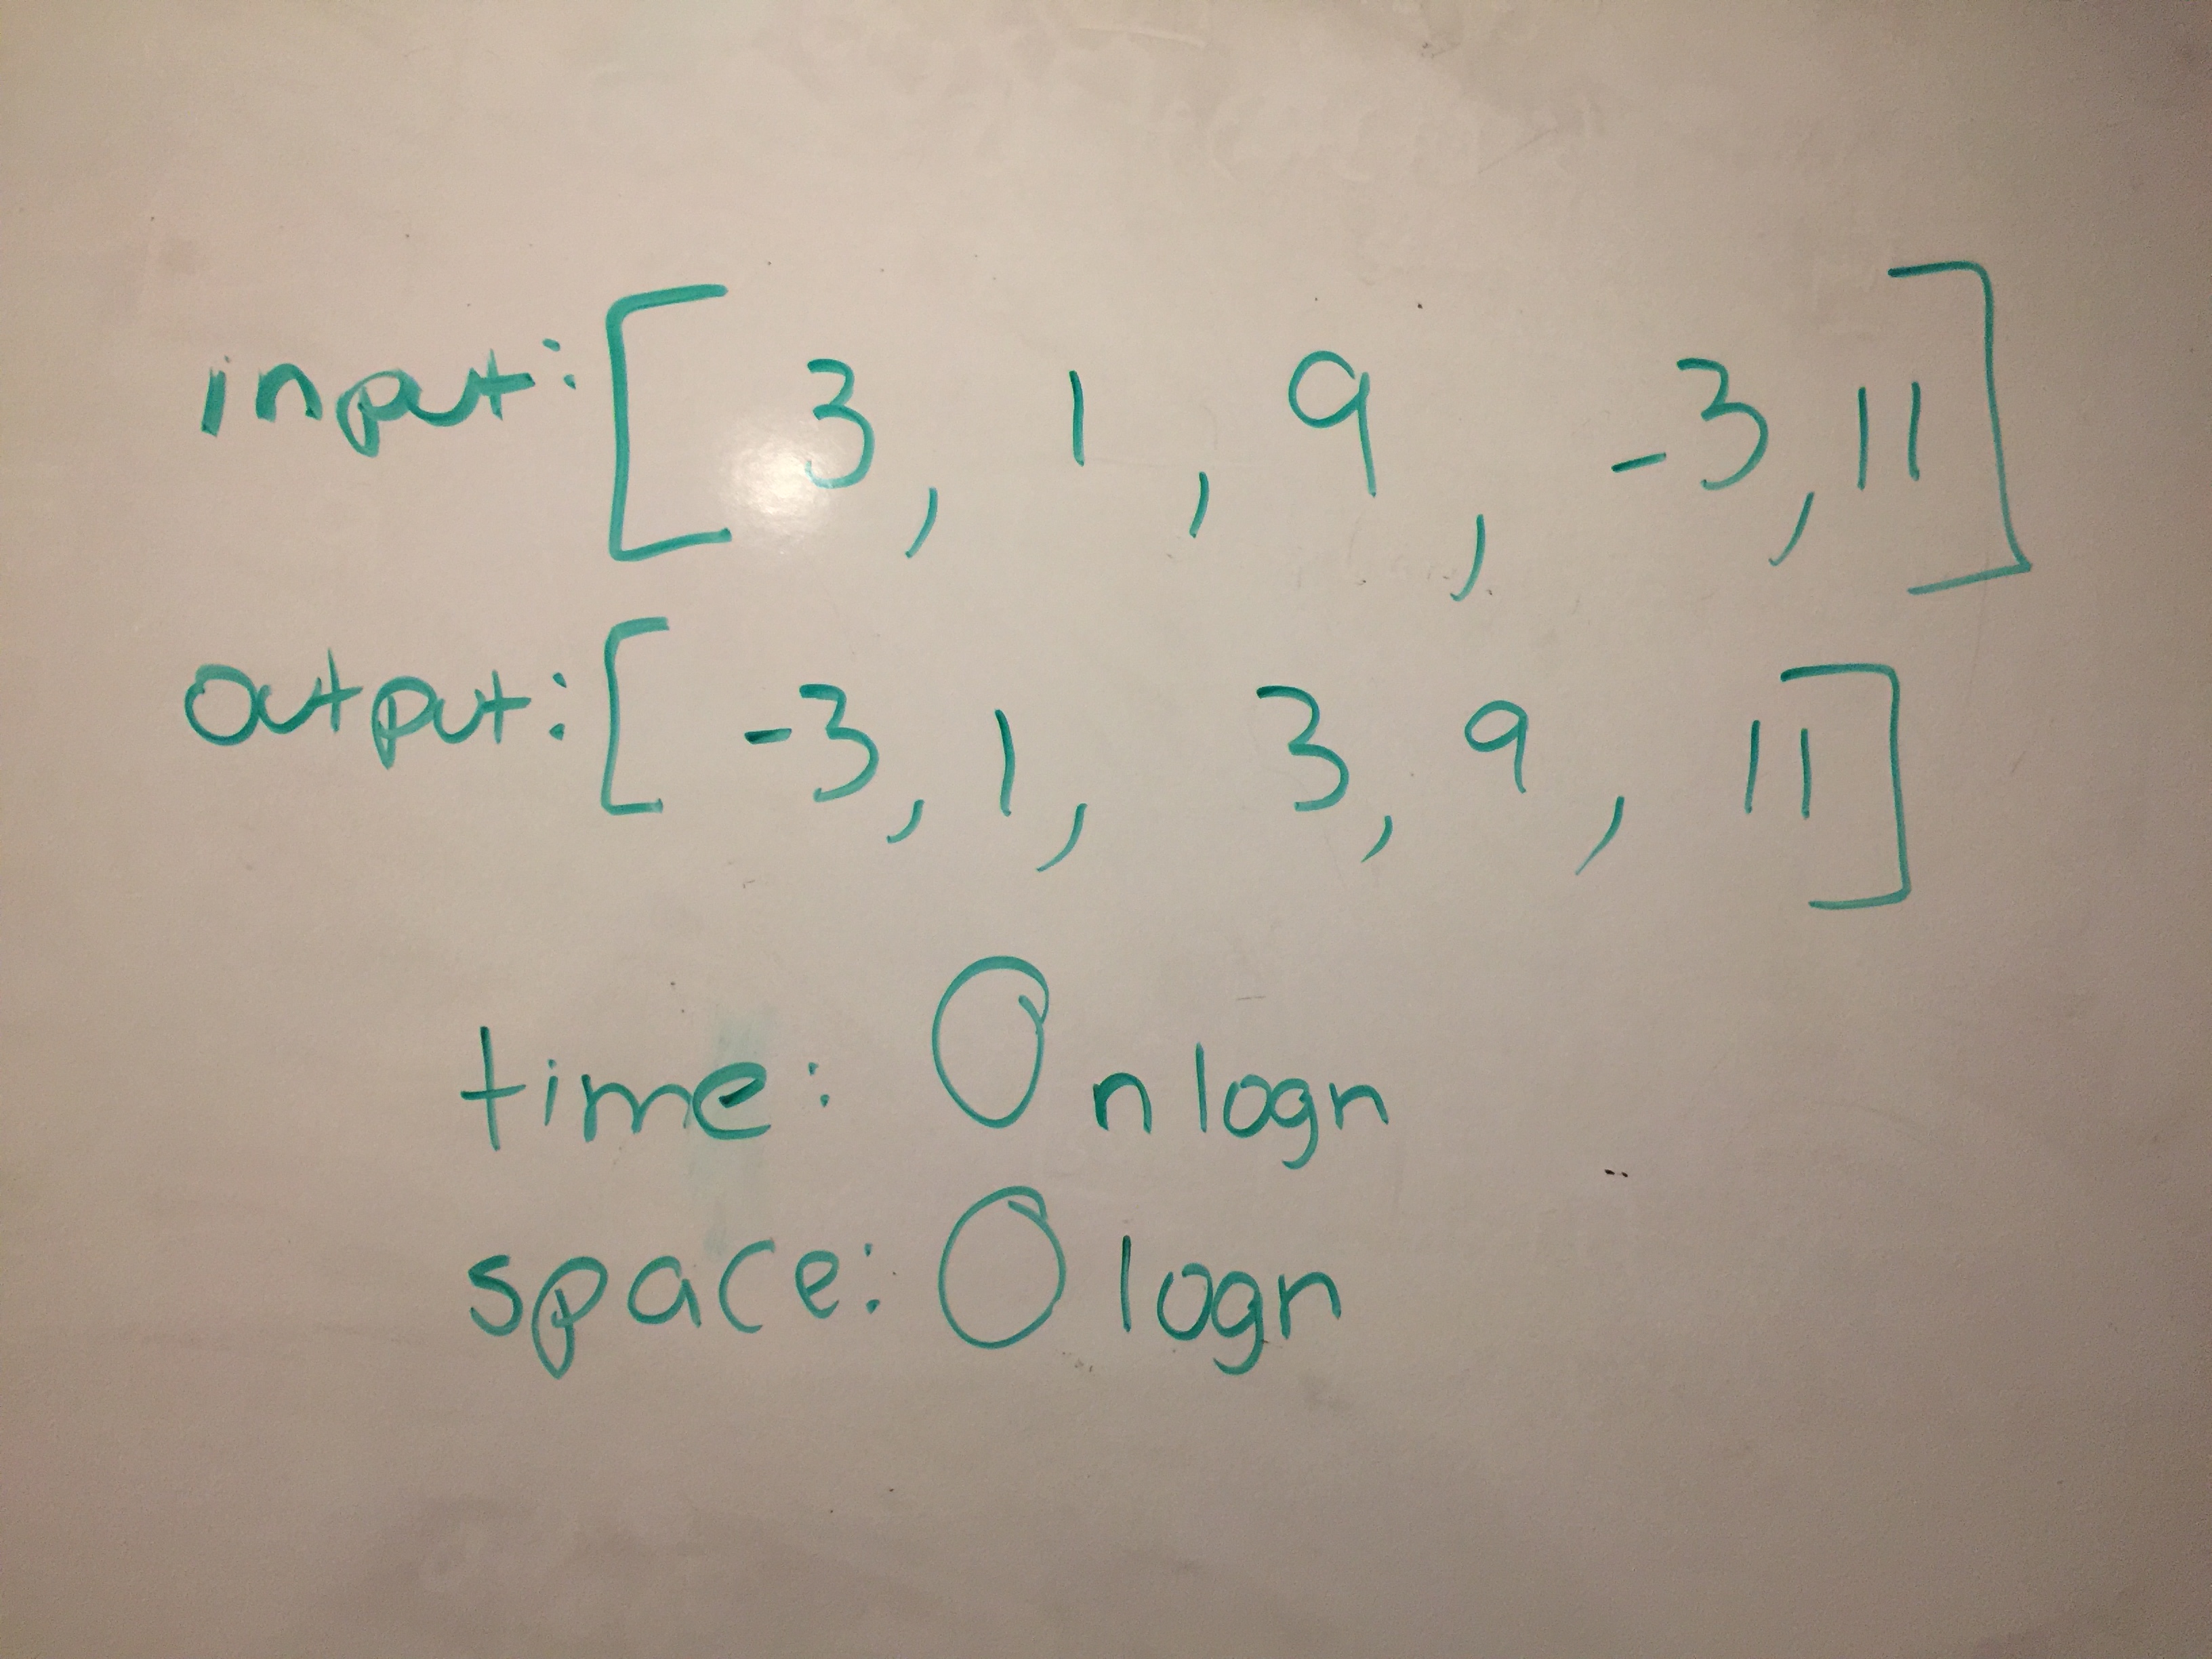 input: [ 3, 1, 9, -3, 11 ]
output: [ -3, 1, 3, 9, 11 ]
time: O n logn
space: O logn